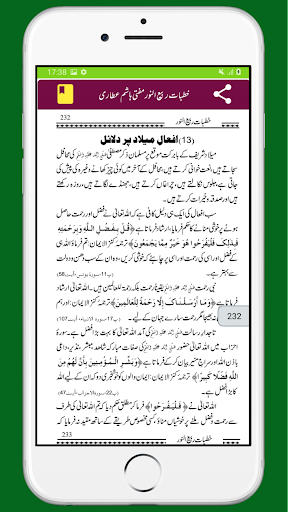 17:38
خطبات ربیع النور مفتی ہاشم عطاری
232 خطبات ربیع النور
(13) افعال میلاد پر دلائل
میلاد شریف کے بابرکت موقع پر مسلمان ذکر مصطفیٰ کی محافل
سجاتے ہیں، نعت خوانی کرتے ہیں، محافل کے آخر میں کوئی چیز کھانے وغیرہ کی پیش کی
جاتی ہے، جلوس نکالتے ہیں، چراغاں کرتے ہیں، جھنڈے لگاتے ہیں، روزہ رکھتے
ہیں اور صدقہ وغیرہ کرتے ہیں۔
سب افعال کی ایک ہی دلیل کافی ہے کہ اللہ تعالیٰ نے فضل اور رحمت حاصل
ہونے پر خوشی منانے کا حکم فرمایا، ارشاد فرماتا ہے ﴿قُلْ بِفَضْلِ اللَّهِ وَبِرَحْمَتِهِ
فَبِذَلِكَ فَلْيَفْرَحُوا هُوَ خَيْرٌ مِمَّا يَجْمَعُونَ﴾ ترجمہ کنز الایمان: تم فرماؤ
اللہ ہی کے فضل اور اسی کی رحمت اور اسی پر چاہیے کہ خوشی کریں، وہ ان کے سب دھن و دولت
سے بہتر ہے۔ (پ11، سورۃ یونس، آیت58)
نبی کریم یقیناً رحمت بلکہ رحمۃ للعالمین ہیں۔ اللہ تعالیٰ ارشاد
فرماتا ہے ﴿وَمَا أَرْسَلْنَاكَ إِلَّا رَحْمَةً لِلْعَالَمِينَ﴾ ترجمہ کنز الایمان: اور ہم نے تمہیں
نہ بھیجا مگر رحمت سارے جہان کے لیے۔ (پ17، سورۃ الانبیاء، آیت107)
232
تاجدار رسالت اللہ تعالیٰ کا بہت بڑا فضل ہے۔ سورۃ
احزاب میں اللہ تعالیٰ نے سرکار کی صفات مبارکہ شاهد، مبشر، نذیر، داعی
باذن اللہ اور سراج منیر بیان کرکے فرماتا ہے ﴿وَبَشِّرِ الْمُؤْمِنِينَ بِأَنَّ لَهُمْ مِنَ
اللَّهِ فَضْلًا كَبِيرًا﴾ ترجمہ کنز الایمان: اور ایمان والوں کو خوشخبری دو کہ ان کے لیے اللہ
کا بڑا فضل ہے۔ (پ22، سورۃ الاحزاب، آیت47)
اللہ تعالیٰ نے ﴿فَلْيَفْرَحُوا﴾ فرما کر مطلق حکم دیا کہ تم اللہ تعالیٰ کی طرف
سے رحمت و فضل ملنے پر خوشیاں مناؤ، کسی مخصوص طریقے کے ساتھ مقید نہ فرمایا کہ
233 خطبات ربیع النور